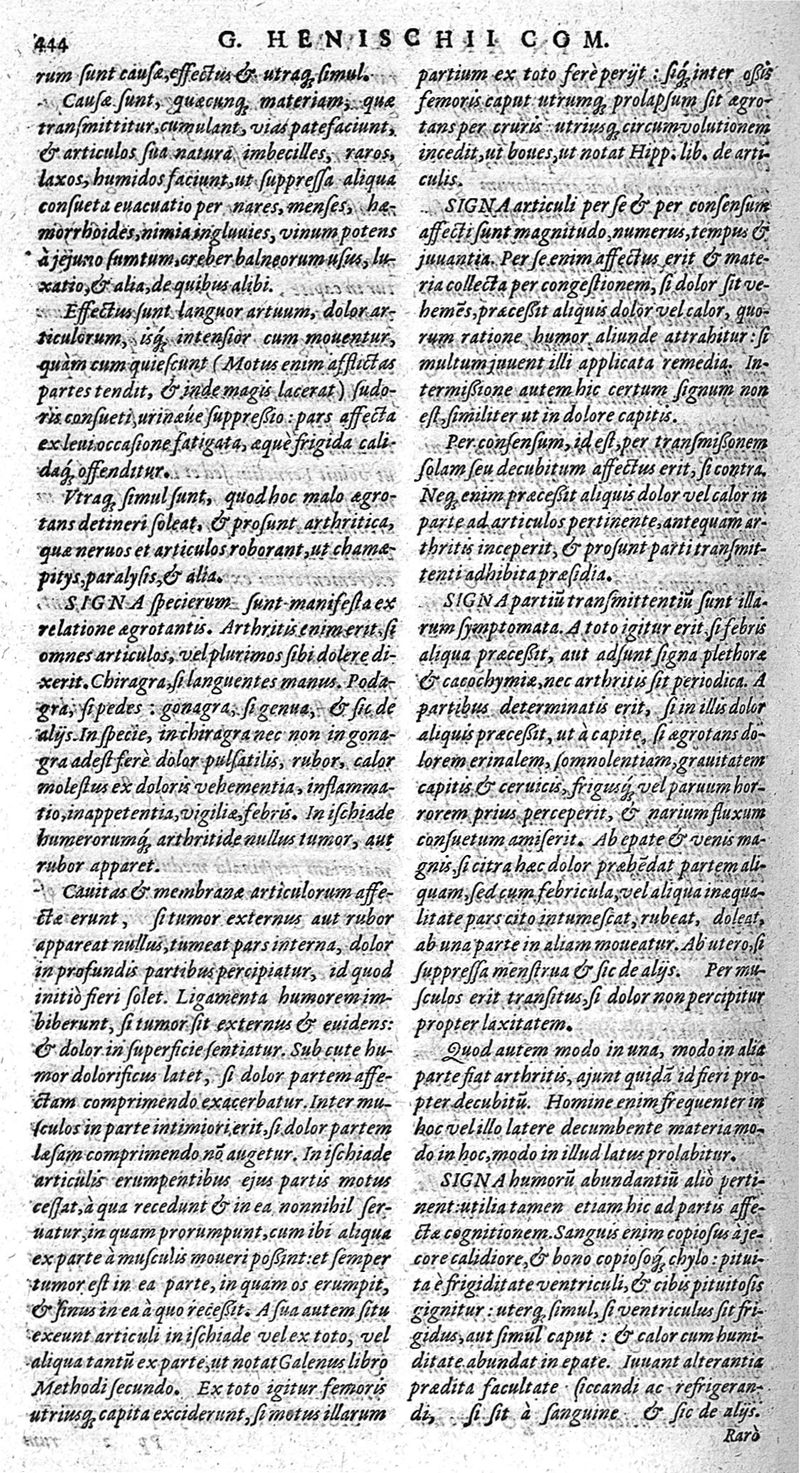 444
G. HENISCHII COM.
rum sunt causæ, effectus & utraq; simul.
Causæ sunt, quæcunq; materiam, quæ
transmittitur, cumulant, vias patefaciunt,
& articulos sua natura imbecilles, raros,
laxos, humidos faciunt, ut suppressa aliqua
consueta evacuatio per nares, menses, hæ-
morrhoides, nimia ingluuies, vinum potens
à jejuno sumtum, creber balneorum usus, lu-
xatio, & alia, de quibus alibi.
Effectus sunt languor artuum, dolor ar-
ticulorum, isq; intensior cum mouentur,
quàm cum quiescunt (Motus enim afflictas
partes tendit, & inde magis lacerat) sudo-
ris consueti, urinæue suppreßio: pars affecta
ex leui occasione fatigata, æquè frigida cali-
daq; offenditur.
Vtraq; simul sunt, quod hoc malo ægro-
tans detineri soleat, & prosunt arthritica,
quæ neruos et articulos roborant, ut chamæ-
pitys, paralysis, & alia.
SIGNA specierum sunt manifesta ex
relatione ægrotantis. Arthritis enim erit, si
omnes articulos, vel plurimos sibi dolere di-
xerit. Chiragra, si languentes manus. Poda-
gra, si pedes: gonagra, si genua, & sic de
alijs. In specie, in chiragra nec non in gona-
gra adest ferè dolor pulsatilis, rubor, calor
molestus ex doloris vehementia, inflamma-
tio, inappetentia, vigiliæ, febris. In ischiade
humerorumq; arthritide nullus tumor, aut
rubor apparet.
Cauitas & membranæ articulorum affe-
ctæ erunt, si tumor externus aut rubor
appareat nullus, tumeat pars interna, dolor
in profundis partibus percipiatur, id quod
initiò fieri solet. Ligamenta humorem im-
biberunt, si tumor sit externus & euidens:
& dolor in superficie sentiatur. Sub cute hu-
mor dolorificus latet, si dolor partem affe-
ctam comprimendo exacerbatur. Inter mu-
sculos in parte intimiori erit, si dolor partem
læsam comprimendo nō augetur. In ischiade
articulis erumpentibus ejus partis motus
cessat, à qua recedunt & in ea nonnihil ser-
uatur, in quam prorumpunt, cum ibi aliqua
ex parte à musculis moueri poßint: et semper
tumor est in ea parte, in quam os erumpit,
& sinus in ea à quo receßit. A sua autem situ
exeunt articuli in ischiade vel ex toto, vel
aliqua tantū ex parte, ut notat Galenus libro
Methodi secundo. Ex toto igitur femoris
utriusq; capita exciderunt, si motus illarum
partium ex toto ferè perijt: siq; inter oßis
femoris caput utrumq; prolapsum sit ægro-
tans per cruris utriusq; circumvolutionem
incedit, ut boues, ut notat Hipp. lib. de arti-
culis.
SIGNA articuli per se & per consensum
affecti sunt magnitudo, numerus, tempus &
juuantia. Per se enim affectus erit & mate-
ria collecta per congestionem, si dolor sit ve-
hemēs, præceßit aliquis dolor vel calor, quo-
rum ratione humor aliunde attrahitur: si
multum juuent illi applicata remedia. In-
termißione autem hic certum signum non
est, similiter ut in dolore capitis.
Per consensum, id est, per transmißonem
solam seu decubitum affectus erit, si contra.
Neq; enim præceßit aliquis dolor vel calor in
parte ad articulos pertinente, antequam ar-
thritis inceperit, & prosunt parti transmit-
tenti adhibita præsidia.
SIGNA partiū transmittentiū sunt illa-
rum symptomata. A toto igitur erit si febris
aliqua præceßit, aut adsunt signa plethoræ
& cacochymiæ, nec arthritis sit periodica. A
partibus determinatis erit, si in illis dolor
aliquis præceßit, ut à capite, si ægrotans do-
lorem erinalem, somnolentiam, grauitatem
capitis & ceruicis, frigusq; vel paruum hor-
rorem prius perceperit, & narium fluxum
consuetum amiserit. Ab epate & venis ma-
gnis, si citra hæc dolor præhēdat partem ali-
quam, sed cum febricula, vel aliqua inæqua-
litate pars cito intumescat, rubeat, doleat,
ab una parte in aliam moueatur. Ab utero, si
suppressa menstrua & sic de alijs. Per mu-
sculos erit transitus, si dolor non percipitur
propter laxitatem.
Quod autem modo in una, modo in alia
parte fiat arthritis, ajunt quidā id fieri pro-
pter decubitū. Homine enim frequenter in
hoc vel illo latere decumbente materia mo-
do in hoc, modo in illud latus prolabitur.
SIGNA humorū abundantiū aliò perti-
nent: utilia tamen etiam hic ad partis affe-
ctæ cognitionem. Sanguis enim copiosus à je-
core calidiore, & bono copiosoq; chylo: pitui-
ta è frigiditate ventriculi, & cibis pituitosis
gignitur: uterq; simul, si ventriculus sit fri-
gidus, aut simul caput: & calor cum humi-
ditate abundat in epate. Iuuant alterantia
prædita facultate siccandi ac refrigeran-
di, si sit à sanguine & sic de alijs.
Rarò